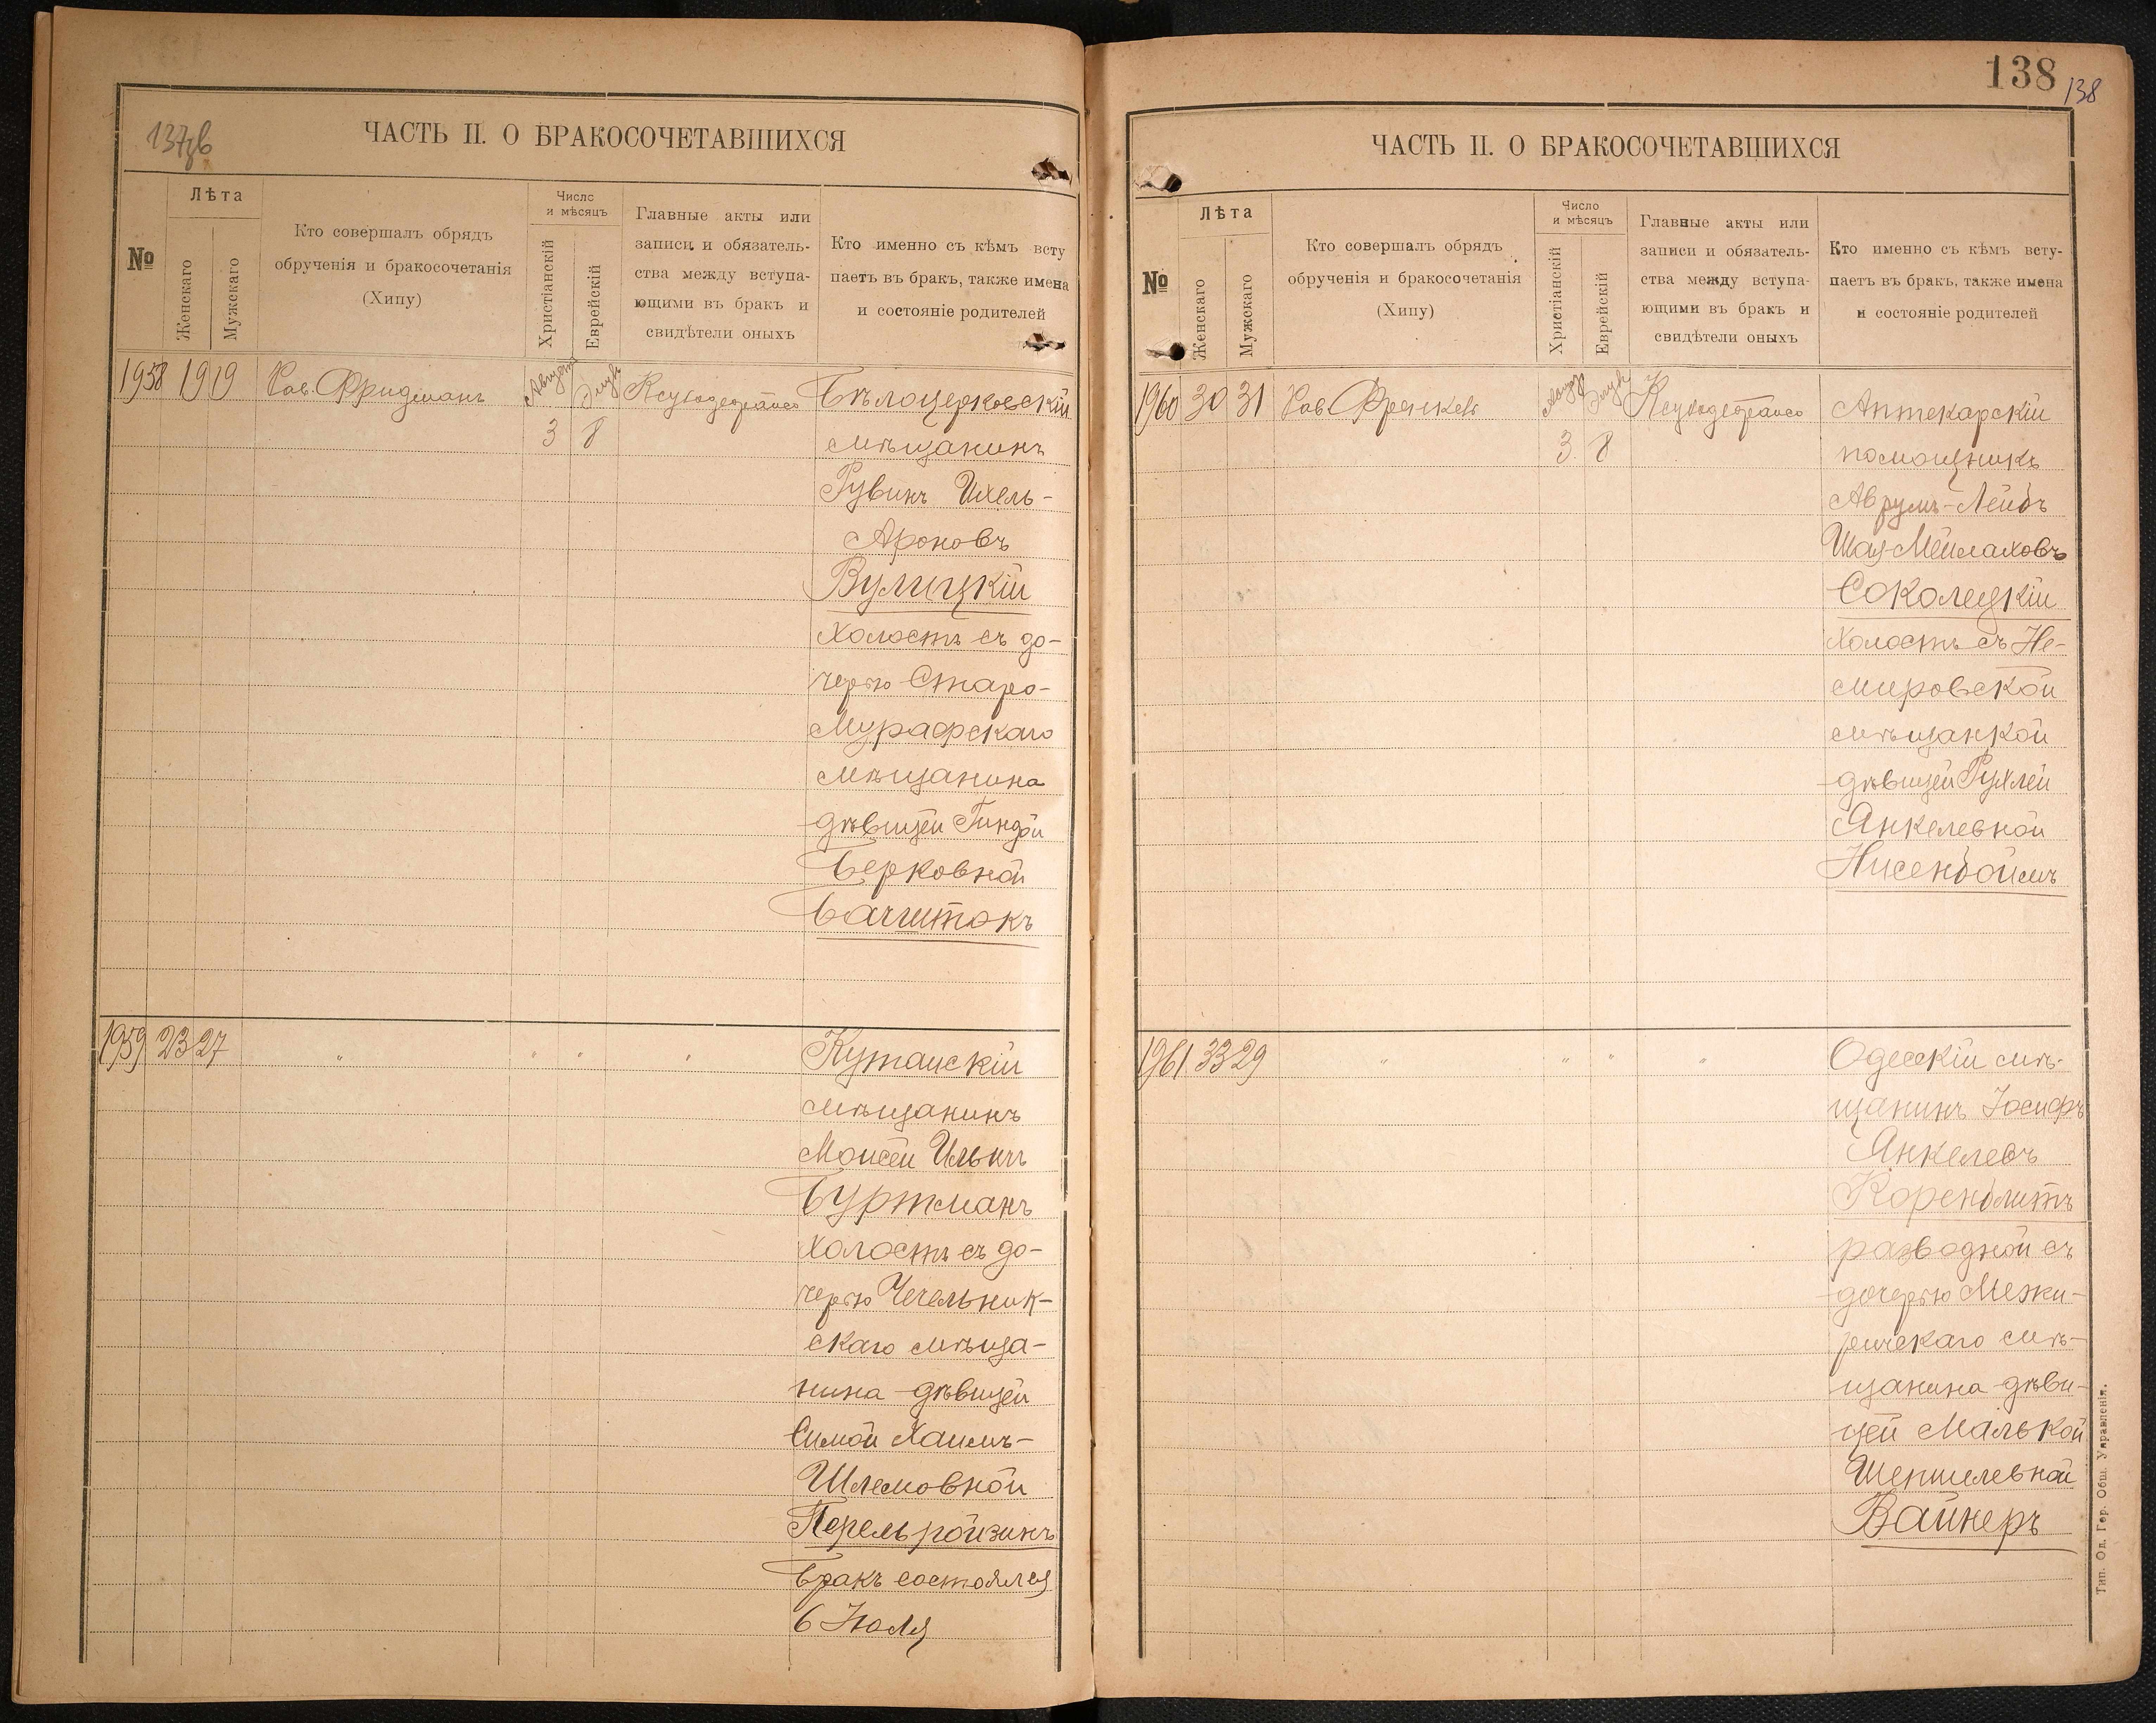 137зв
ЧАСТЬ II. О БРАКОСОЧЕТАВШИХСЯ
№
Лѣта
Женскаго
Мужскаго
Кто совершалъ обрядъ
обрученія и бракосочетанія
(Хипу)
Число
и мѣсяцъ
Христіанскій
Еврейскій
Главные акты или
записи и обязатель-
ства между вступа-
ющими въ бракъ и
свидѣтели оныхъ
Кто именно съ кѣмъ всту
паетъ въ бракъ, также имена
и состояніе родителей
1958 19 19 Рав. Фридманъ Августъ Элулъ
3 8
Бѣлоцерковскій
мѣщанинъ
Рувинъ Ихель-
Ароновъ
Вулицкій
холостъ съ до-
черью Старо-
Мурафскаго
мѣщанина
дѣвицей Гиндой
Берковной
Бачштокъ
1959 23 27 " " " "
Кутаисскій
мѣщанинъ
Моисей Ильинъ
Буртманъ
холостъ съ до-
черью Чечельник-
скаго мѣща-
нина дѣвицей
Симой Хаимъ-
Шлемовной
Перельройзинъ
Бракъ состоялся
6 Іюля
138
138
ЧАСТЬ II. О БРАКОСОЧЕТАВШИХСЯ
№
Лѣта
Женскаго
Мужскаго
Кто совершалъ обрядъ
обрученія и бракосочетанія
(Хипу)
Число
и мѣсяцъ
Христіанскій
Еврейскій
Главные акты или
записи и обязатель-
ства между вступа-
ющими въ бракъ и
свидѣтели оныхъ
Кто именно съ кѣмъ всту-
паетъ въ бракъ, также имена
и состояніе родителей
1960 30 31 Рав. Френкель Августъ Элулъ
3 8
Аптекарскій
помощникъ
Аврумъ-Лейбъ
Шая-Мейлаховъ
Соколецкій
холостъ съ Не-
мировской
мѣщанкой
дѣвицей Рухлей
Янкелевной
Нисенбоймъ
1961 33 29 " " " "
Одесскій мѣ-
щанинъ Іосифъ
Янкелевъ
Коренблитъ
разводной съ
дочерью Межи-
ричскаго мѣ-
щанина дѣви-
цей Малькой
Шепшелевной
Вайнеръ
Тип. Од. Гор. Общ. Управленія.